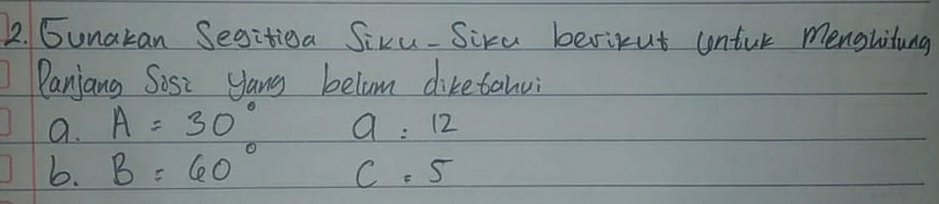 2. Gunakan Segitiga Siku-Siku berikut untuk Menghitung
Panjang Sisi yang belum diketahui
a. A = 30° a : 12
b. B = 60° C = 5